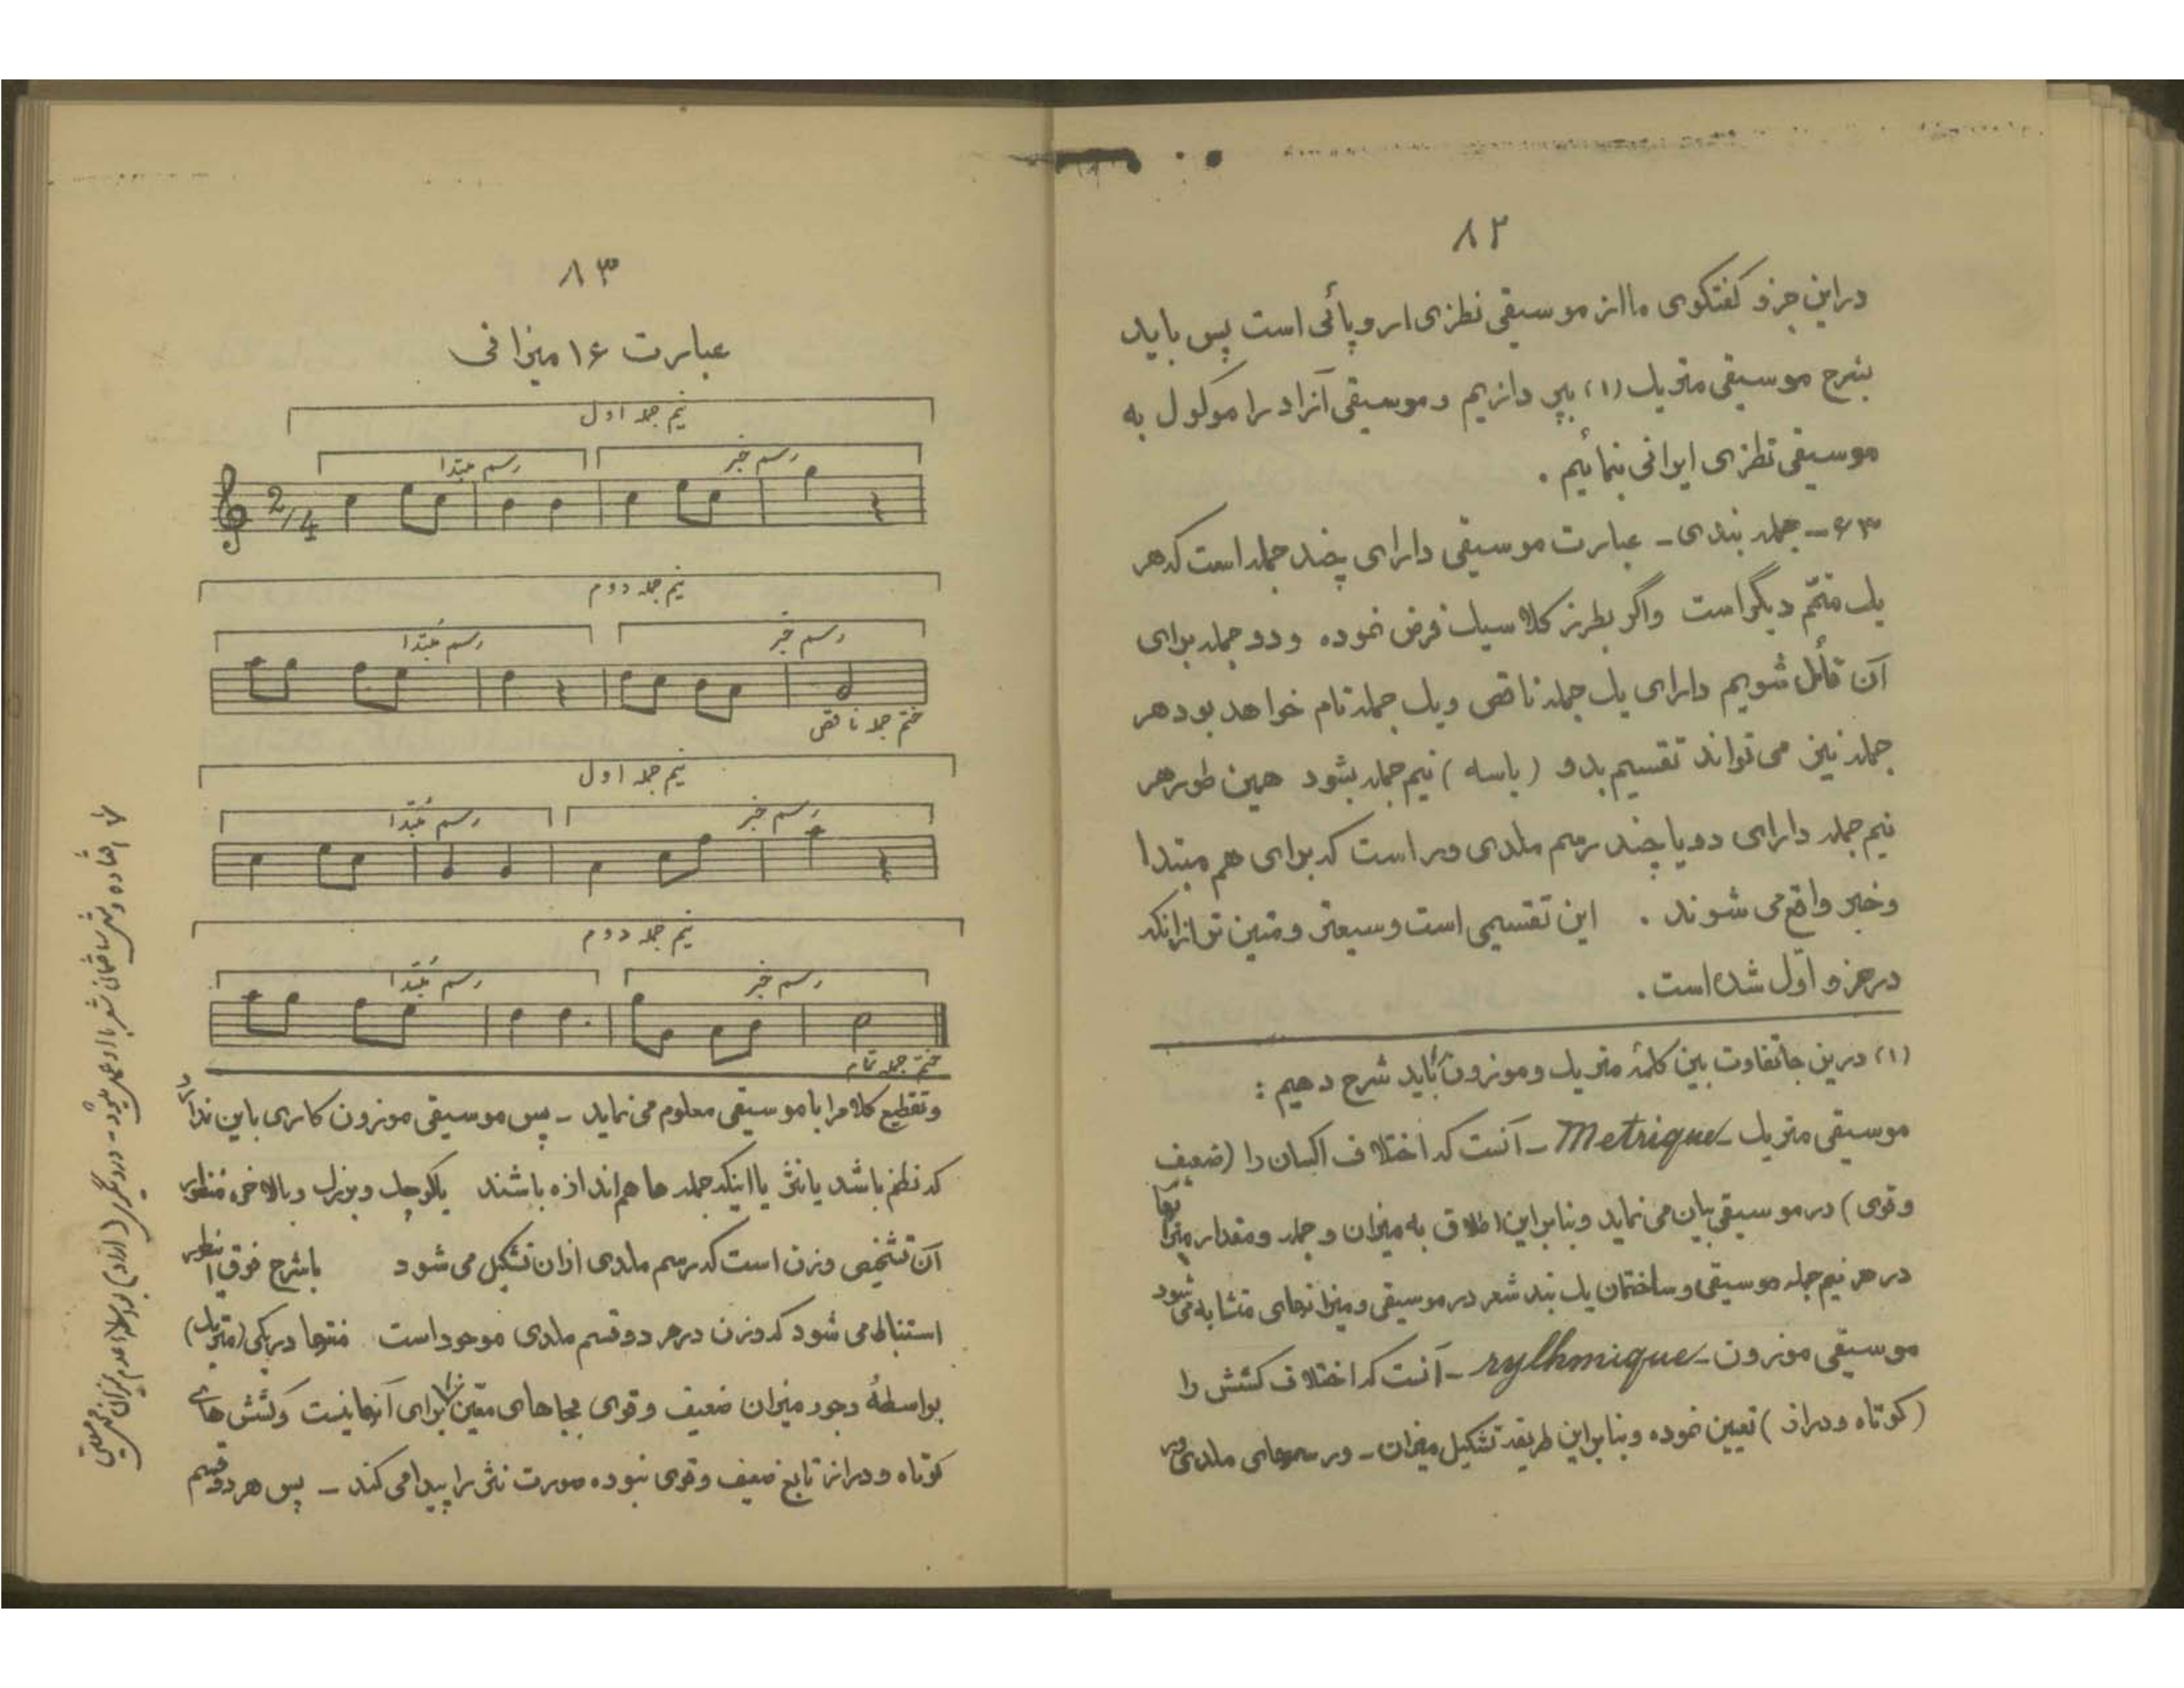 ۸۲
در این جزو گفتگوی ما از موسیقی نظری اروپائی است پس باید
بشرح موسیقی متریک (۱) بپردازیم و موسیقی آزاد را موکول به
موسیقی نظری ایرانی بنمائیم .
۶۳ – جمله بندی – عبارت موسیقی دارای چند جمله است که هر
یک متمّم دیگر است واگر بطرز کلاسیک فرض نموده و دو جمله برای
آن قائل شویم دارای یک جمله ناقص و یک جمله تام خواهد بود هر
جمله نیز می تواند تقسیم بدو ( یا سه ) نیم جمله بشود همین طور هر
نیم جمله دارای دو یا چند رسم ملدی ور است که برای هم مبتدا
وخبر واقع می شوند . این تقسیمی است وسیعتر و متین تر از آنکه
در جزو اوّل شده است .
(۱) درین جا تفاوت بین کلمهٔ متریک و موزون را باید شرح دهیم :
موسیقی متریک Metrique – آنست که اختلاف اکسان را (ضعیف
و قوی ) در موسیقی بیان می نماید و بنابراین اطلاق به میزان و جمله و مقدار میزانها
در هر نیم جمله موسیقی و ساختمان یک بند شعر در موسیقی و میزانهای متشابه می شود
موسیقی موزون – rythmique – آنست که اختلاف کشش را
(کوتاه و دراز ) تعیین نموده و بنابراین طریقه تشکیل میزان – و رسمهای ملدی ور
۸۳
عبارت ۱۶ میزانی
نیم جمله اول
رسم مبتدا رسم خبر
2/4
نیم جمله دوم
رسم مُبتدا رسم خبر
ختم جمله ناقص
نیم جمله اول
رسم مُبتدا رسم خبر
نیم جمله دوم
رسم مُبتدا رسم خبر
ختم جمله تام
و تقطیع کلام را با موسیقی معلوم می نماید – پس موسیقی موزون کاری باین ندارد
که نظم باشد یا نثر یا اینکه جمله ها هم اندازه باشند یا کوچک و بزرگ و بالاخره منظور
آن تشخیص وزن است که رسم ملدی از آن تشکیل می شود با شرح فوق اینطور
استنباط می شود که وزن در هر دو قسم ملدی موجود است منتها در یکی (متریک)
بواسطهٔ وجود میزان ضعیف و قوی بجاهای معین برای آنها نیست و کشش های
کوتاه و دراز تابع ضعیف و قوی نبوده صورت نثر را پیدا می کند – پس هر دو قسم